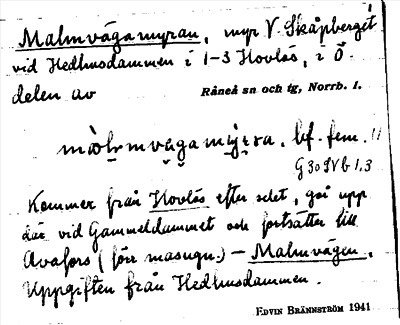 Malmvägamyran, myr V. Skåpberget
vid Hedhusdammen i 1-3 Hovlös, i Ö.
delen av
Råneå sn och tg, Norrb. l.
bf. fem.
G30SVb 1,3
Kommer från Hovlös efter selet, går upp
där vid Gammeldammet och fortsätter till
Avafors (förr masugn.) – Malmvägen.
Uppgiften från Hedhusdammen.
EDVIN BRÄNNSTRÖM 1941